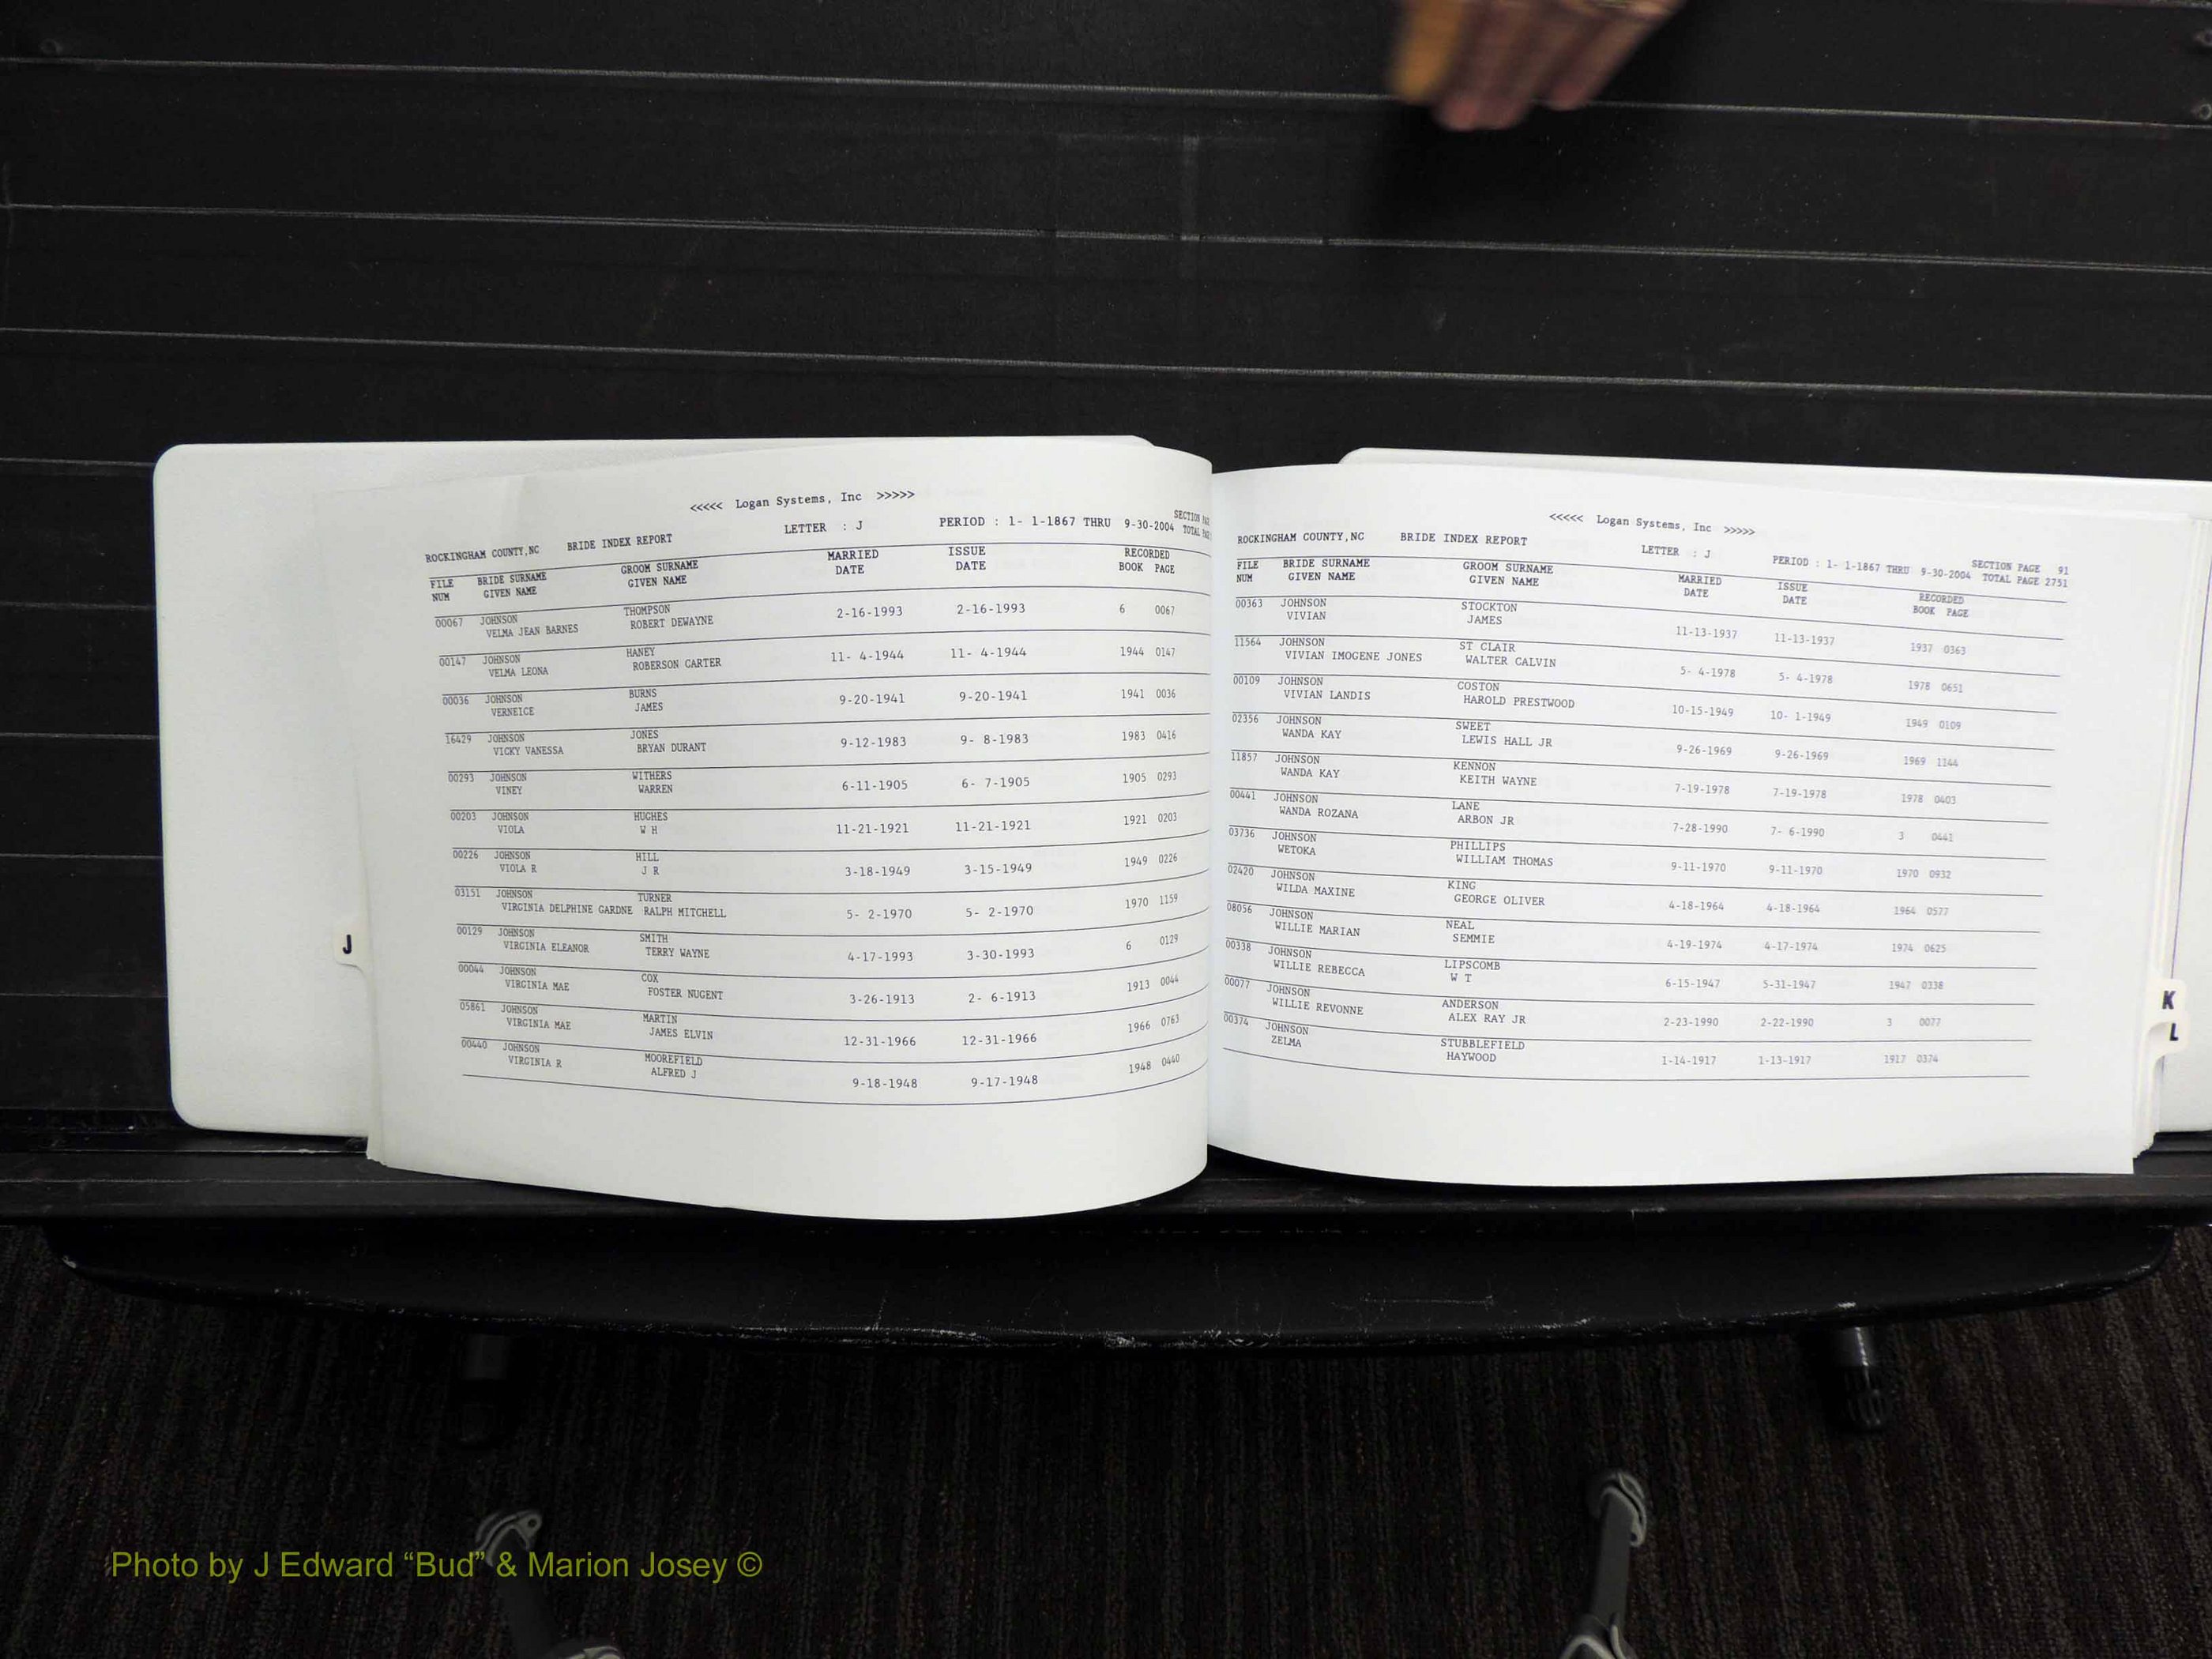 <<<<< Logan Systems, Inc >>>>>
ROCKINGHAM COUNTY,NC BRIDE INDEX REPORT LETTER : J PERIOD : 1- 1-1867 THRU 9-30-2004 SECTION
TOTAL
FILE BRIDE SURNAME GROOM SURNAME MARRIED ISSUE RECORDED
NUM GIVEN NAME GIVEN NAME DATE DATE BOOK PAGE
00067 JOHNSON THOMPSON 2-16-1993 2-16-1993 6 0067
VELMA JEAN BARNES ROBERT DEWAYNE
00147 JOHNSON HANEY 11- 4-1944 11- 4-1944 1944 0147
VELMA LEONA ROBERSON CARTER
00036 JOHNSON BURNS 9-20-1941 9-20-1941 1941 0036
VERNEICE JAMES
16429 JOHNSON JONES 9-12-1983 9- 8-1983 1983 0416
VICKY VANESSA BRYAN DURANT
00293 JOHNSON WITHERS 6-11-1905 6- 7-1905 1905 0293
VINEY WARREN
00203 JOHNSON HUGHES 11-21-1921 11-21-1921 1921 0203
VIOLA W H
00226 JOHNSON HILL 3-18-1949 3-15-1949 1949 0226
VIOLA R J R
03151 JOHNSON TURNER 5- 2-1970 5- 2-1970 1970 1159
VIRGINIA DELPHINE GARDNE RALPH MITCHELL
00129 JOHNSON SMITH 4-17-1993 3-30-1993 6 0129
VIRGINIA ELEANOR TERRY WAYNE
00044 JOHNSON COX 3-26-1913 2- 6-1913 1913 0044
VIRGINIA MAE FOSTER NUGENT
05861 JOHNSON MARTIN 12-31-1966 12-31-1966 1966 0763
VIRGINIA MAE JAMES ELVIN
00440 JOHNSON MOOREFIELD 9-18-1948 9-17-1948 1948 0440
VIRGINIA R ALFRED J
J
<<<<< Logan Systems, Inc >>>>>
ROCKINGHAM COUNTY,NC BRIDE INDEX REPORT LETTER : J PERIOD : 1- 1-1867 THRU 9-30-2004 SECTION PAGE 91
TOTAL PAGE 2751
FILE BRIDE SURNAME GROOM SURNAME MARRIED ISSUE RECORDED
NUM GIVEN NAME GIVEN NAME DATE DATE BOOK PAGE
00363 JOHNSON STOCKTON 11-13-1937 11-13-1937 1937 0363
VIVIAN JAMES
11564 JOHNSON ST CLAIR 5- 4-1978 5- 4-1978 1978 0651
VIVIAN IMOGENE JONES WALTER CALVIN
00109 JOHNSON COSTON 10-15-1949 10- 1-1949 1949 0109
VIVIAN LANDIS HAROLD PRESTWOOD
02356 JOHNSON SWEET 9-26-1969 9-26-1969 1969 1144
WANDA KAY LEWIS HALL JR
11857 JOHNSON KENNON 7-19-1978 7-19-1978 1978 0403
WANDA KAY KEITH WAYNE
00441 JOHNSON LANE 7-28-1990 7- 6-1990 3 0441
WANDA ROZANA ARBON JR
03736 JOHNSON PHILLIPS 9-11-1970 9-11-1970 1970 0932
WETOKA WILLIAM THOMAS
02420 JOHNSON KING 4-18-1964 4-18-1964 1964 0577
WILDA MAXINE GEORGE OLIVER
08056 JOHNSON NEAL 4-19-1974 4-17-1974 1974 0625
WILLIE MARIAN SEMMIE
00338 JOHNSON LIPSCOMB 6-15-1947 5-31-1947 1947 0338
WILLIE REBECCA W T
00077 JOHNSON ANDERSON 2-23-1990 2-22-1990 3 0077
WILLIE REVONNE ALEX RAY JR
00374 JOHNSON STUBBLEFIELD 1-14-1917 1-13-1917 1917 0374
ZELMA HAYWOOD
K
L
Photo by J Edward “Bud” & Marion Josey ©